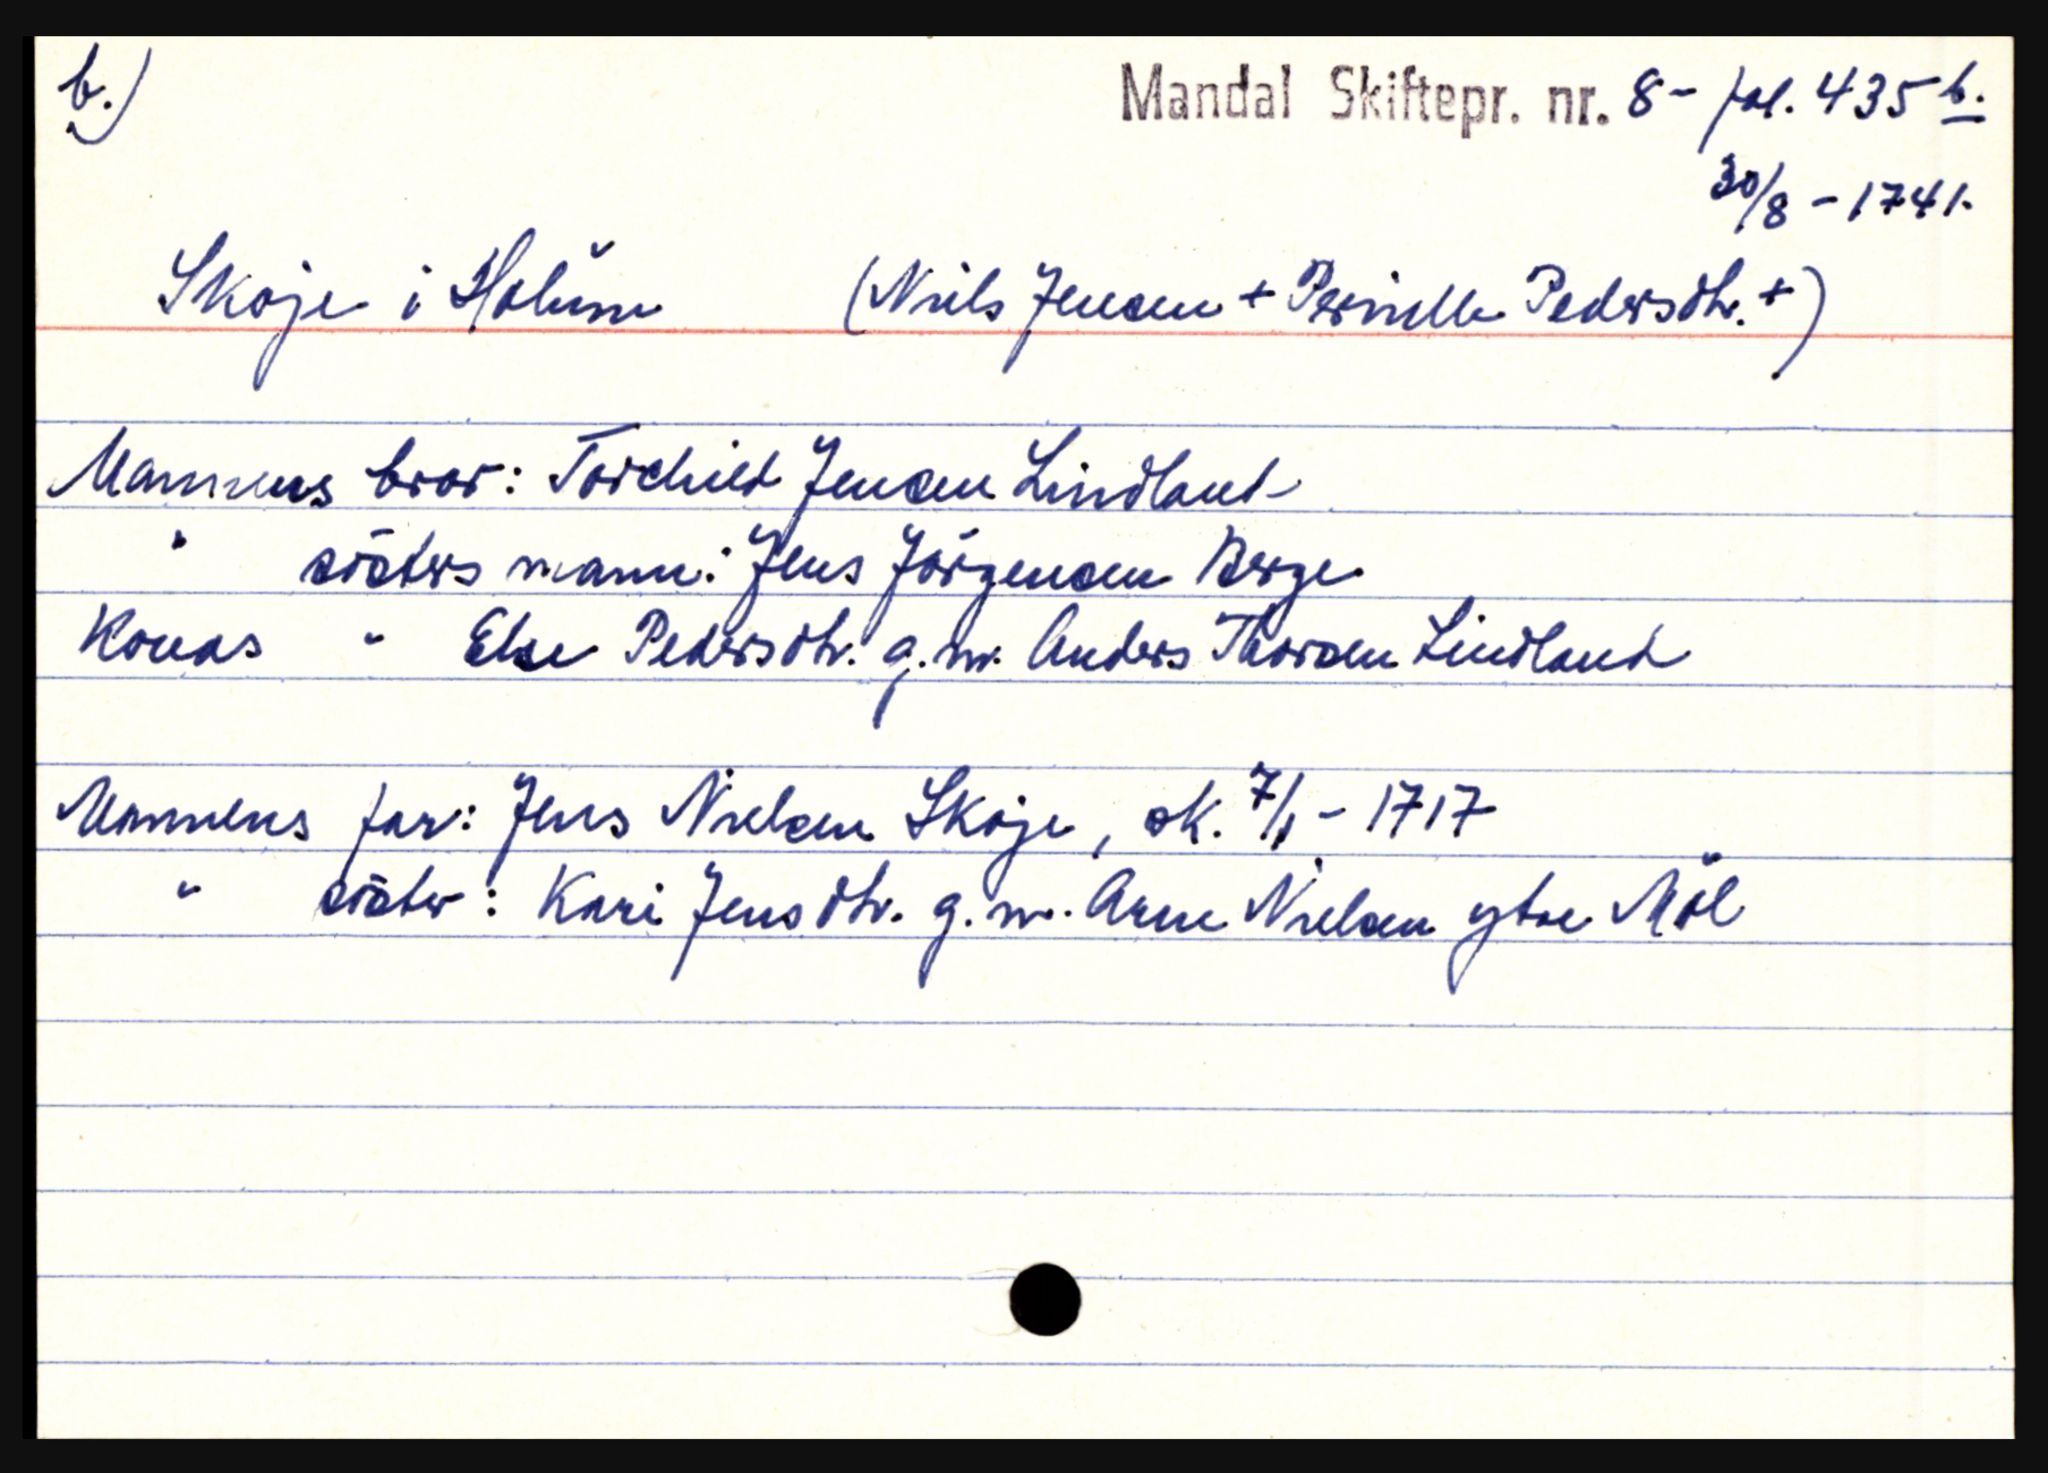 b.)
Mandal Skiftepr. nr. 8 - fol. 435 b.
30/8 - 1741.
Skoje i Holum (Niels Jensen + Pernille Pedersdtr. +)
Mannens bror: Torchild Jensen Lindland
" søsters mann: Jens Jörgensen Berge
Konas " Else Pedersdtr. g.m. Anders Thorsen Lindland
Mannens far: Jens Nielsen Skoje, sk. 7/1 - 1717
" söster: Kari Jensdtr. g.m. Arne Nielsen ytre Möl